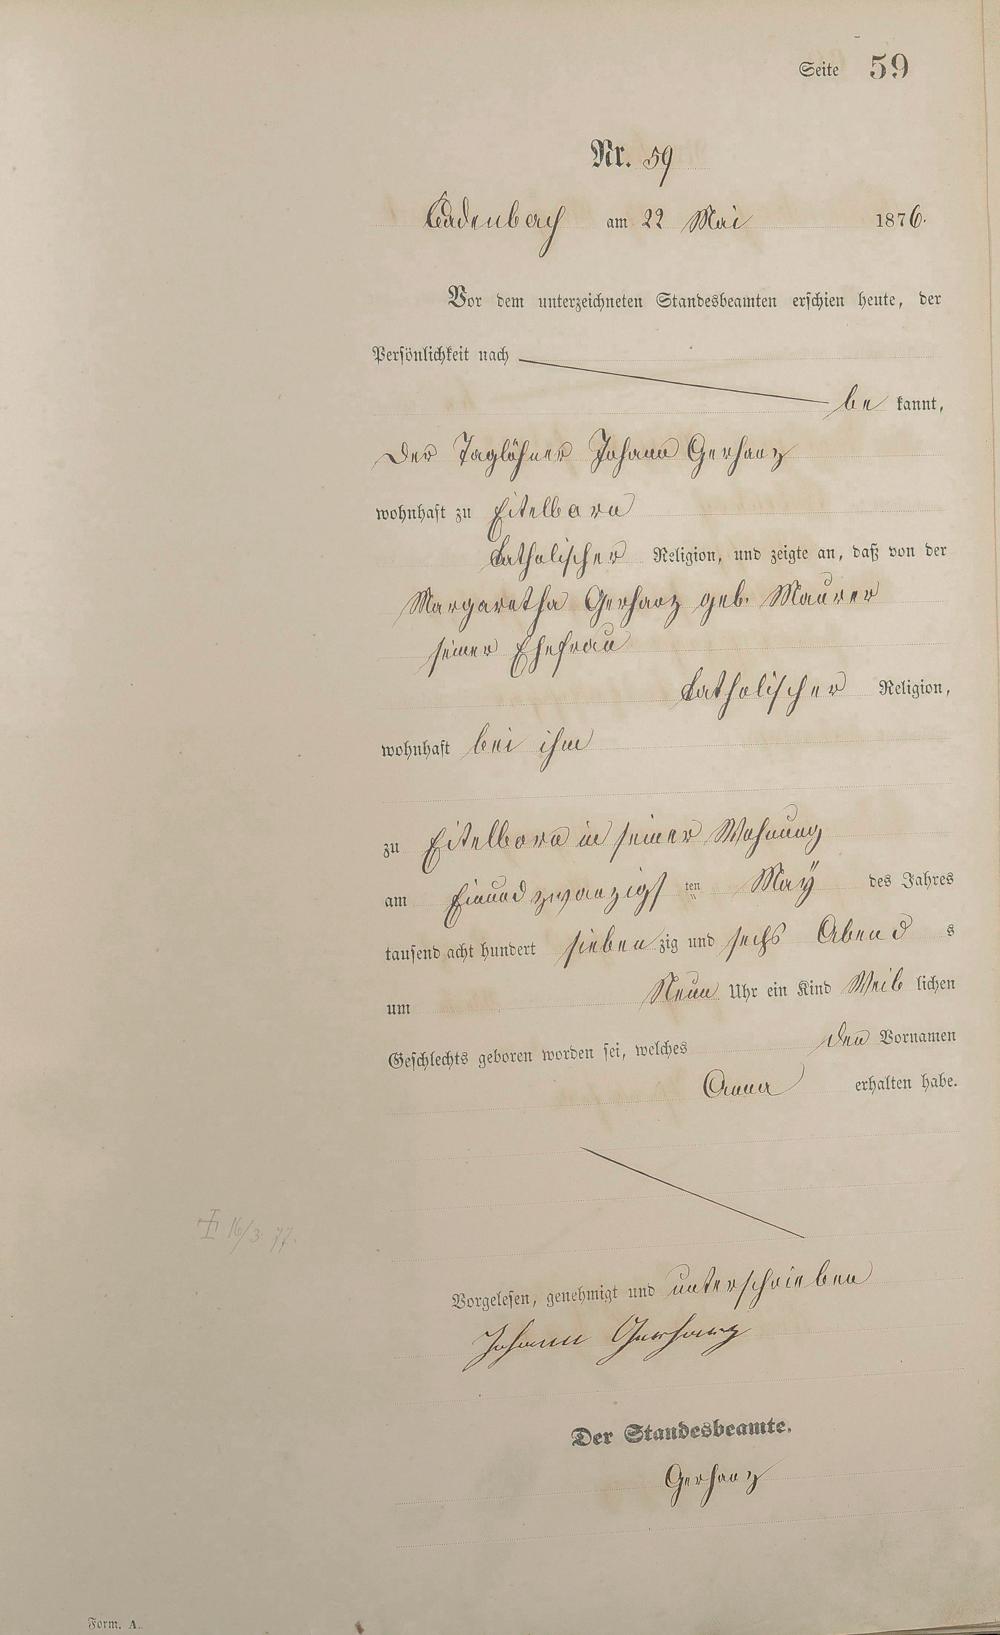 Seite 59
Nr. 59
Cadenbach am 22 Mai 1876.
Vor dem unterzeichneten Standesbeamten erschien heute, der
Persönlichkeit nach
be kannt,
Der Taglöhner Johann Gerharz
wohnhaft zu Eitelborn
katholischer Religion, und zeigte an, daß von der
Margaretha Gerharz geb. Maurer
seiner Ehefrau
katholischer Religion,
wohnhaft bei ihm
zu Eitelborn in seiner Wohnung
am Einund zwanzigs ten Maÿ des Jahres
tausend acht hundert sieben zig und sechs Abend s
um Neun Uhr ein Kind Weib lichen
Geschlechts geboren worden sei, welches den Vornamen
Anna erhalten habe.
16/3 77.
Vorgelesen, genehmigt und unterschrieben
Johann Gerharz
Der Standesbeamte.
Gerharz
Form. A.